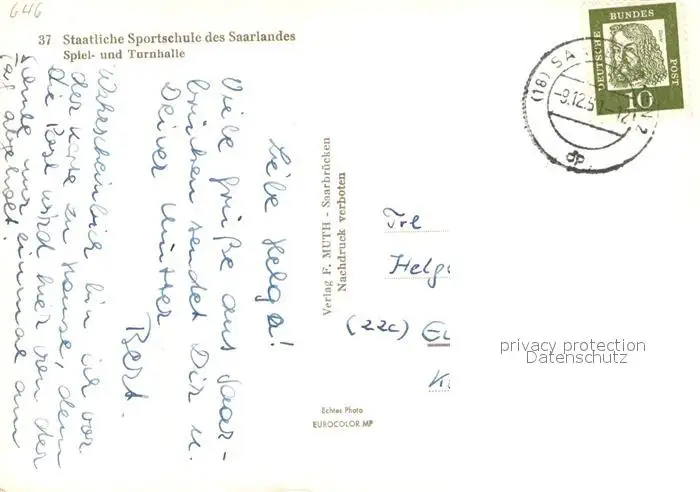 646
37 Staatliche Sportschule des Saarlandes
Spiel- und Turnhalle
Liebe Helga!
Viele Grüße aus Saar-
brücken sendet Dir u.
Deiner Mutter
Bert.
Wahrscheinlich bin ich vor
der Karte zu Hause, denn
die Post wird hier von der
Schule nur einmal am
Tag abgeholt.
Verlag F. MUTH - Saarbrücken
Nachdruck verboten
Echtes Photo
EUROCOLOR MP
Frl
Helg
(22c)
DEUTSCHE
BUNDES
POST
10
(18) SA
-9.12.
privacy protection
Datenschutz